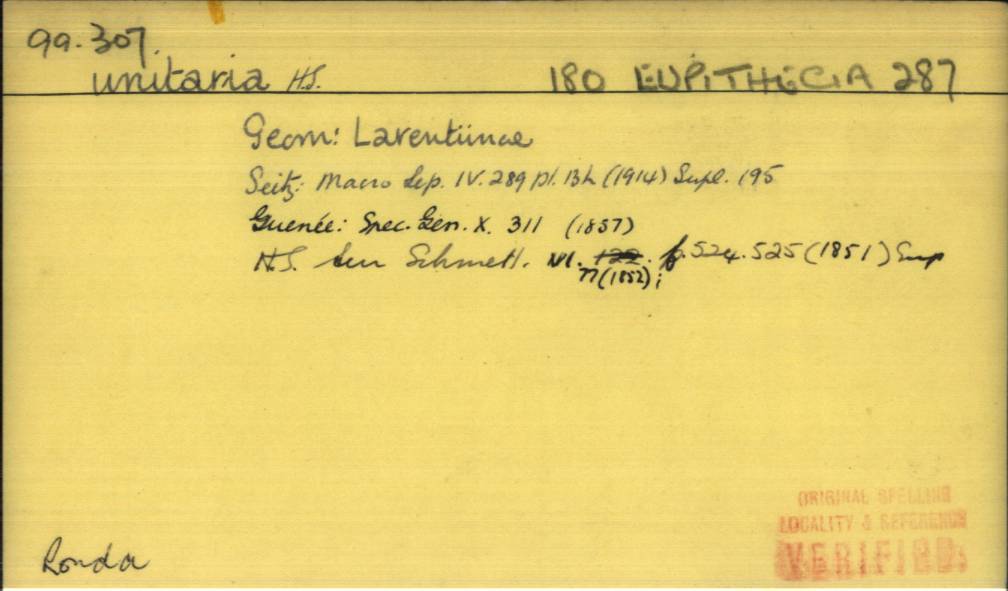 99.307.
unitaria H.S. 180 EUPITHECIA 287
Geom: Larentiinae
Seitz: Macro Lep. IV. 289 pl. 13h (1914) Supl. 195
Guenée: Spec. Gén. X. 311 (1857)
H.S. Eur Schmett. VI. 122. f. 524. 525 (1851) Sup
77 (1852);
ORIGINAL SPELLING
LOCALITY & REFERENCE
VERIFIED.
Ronda